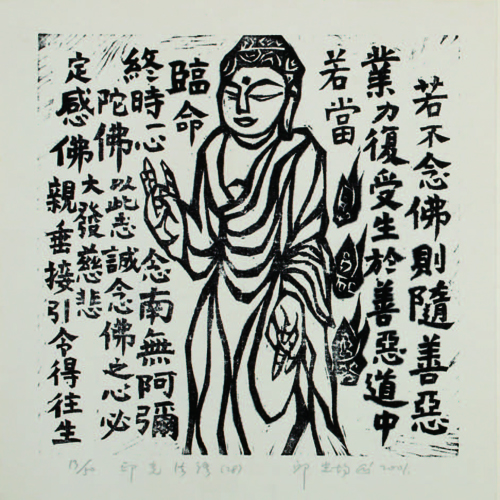 若不念佛則隨善惡
業力復受生於善惡道中
若當
臨命
終時一心念南無阿彌
陀佛以此志誠念佛之心必
定感佛大發慈悲
親垂接引令得往生
印光法語
邱 2001